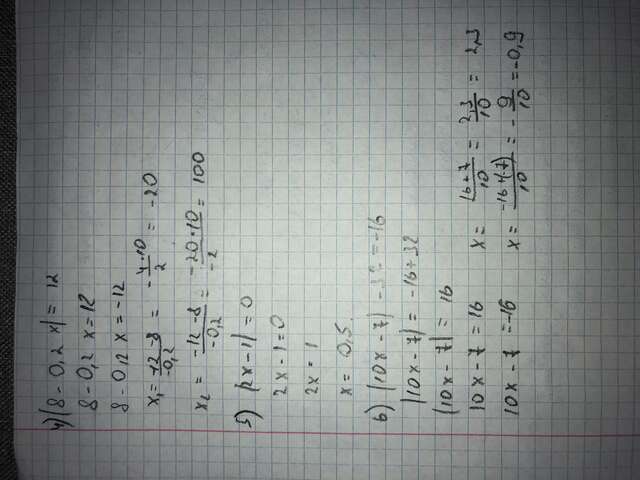 4) |8 - 0,2 x| = 12
8 - 0,2 x = 12
8 - 0,2 x = -12
x₁ = \frac{12-8}{-0,2} = -\frac{4·10}{2} = -20
x₂ = \frac{-12-8}{-0,2} = \frac{-20·10}{-2} = 100
5) |2x - 1| = 0
2x - 1 = 0
2x = 1
x = 0,5.
6) |10x - 7| - 32 = -16
|10x - 7| = -16 + 32
|10x - 7| = 16
10x - 7 = 16 x = \frac{16+7}{10} = \frac{23}{10} = 2,3
10x - 7 = -16 x = \frac{-16+(7)}{10} = -\frac{9}{10} = -0,9